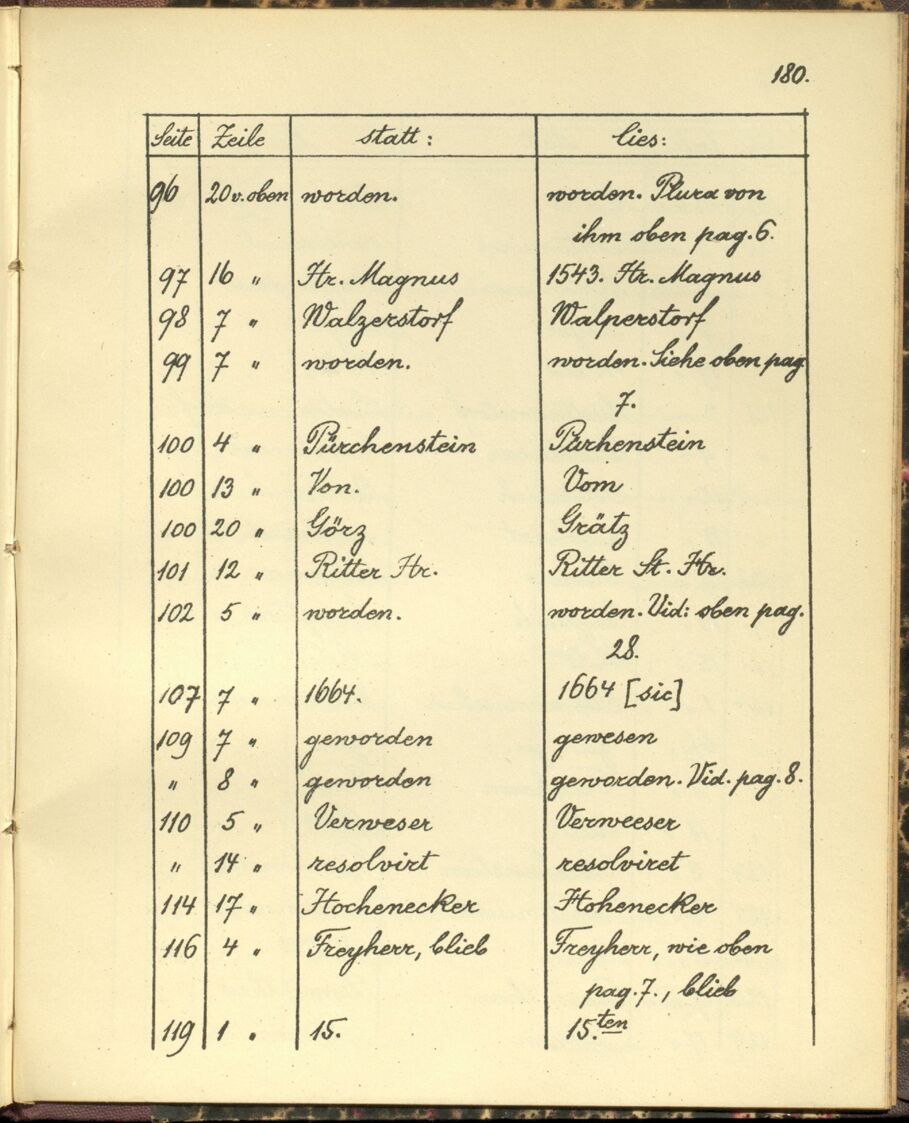 180.
Seite Zeile statt: lies:
96 20 v. oben worden. worden. Plura von
ihm oben pag. 6.
97 16 " Hr. Magnus 1543. Hr. Magnus
98 7 " Walzerstorf Walperstorf
99 7 " worden. worden. Siehe oben pag
7.
100 4 " Pürchenstein Pürhenstein
100 13 " Von. Vom
100 20 " Görz Grätz
101 12 " Ritter Hr. Ritter St. Hr.
102 5 " worden. worden. Vid: oben pag.
28.
107 7 " 1664. 1664 [sic]
109 7 " geworden gewesen
" 8 " geworden geworden. Vid. pag. 8.
110 5 " Verweser Verweeser
" 14 " resolvirt resolviret
114 17 " Hochenecker Hohenecker
116 4 " Freyherr, blieb Freyherr, wie oben
pag. 7., blieb
119 1 " 15. 15.ten